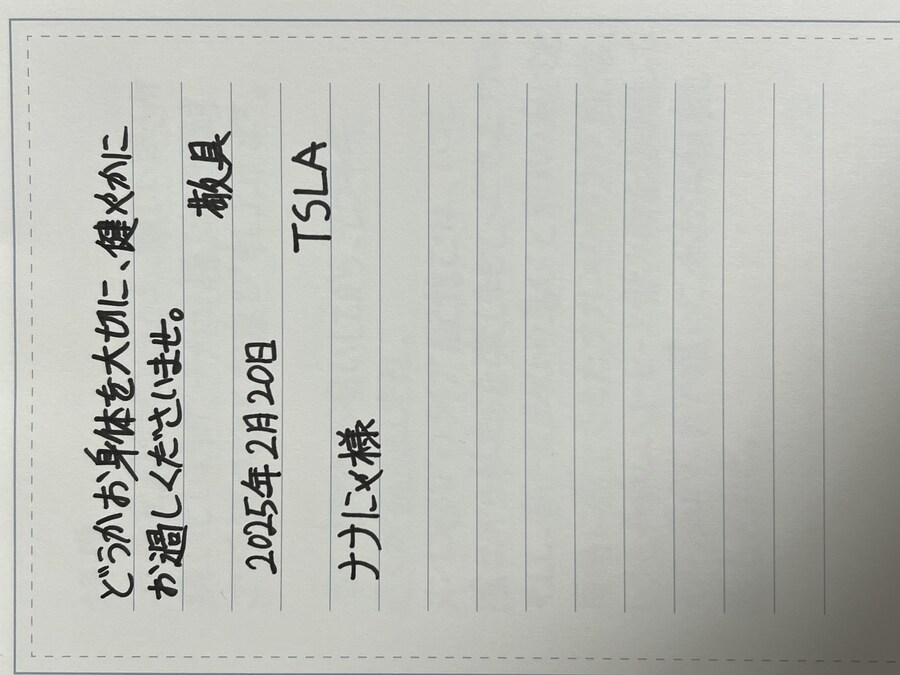 どうかお身体を大切に、健やかに
お過しくださいませ。
敬具
2025年2月20日
TSLA
ナナにゃ様